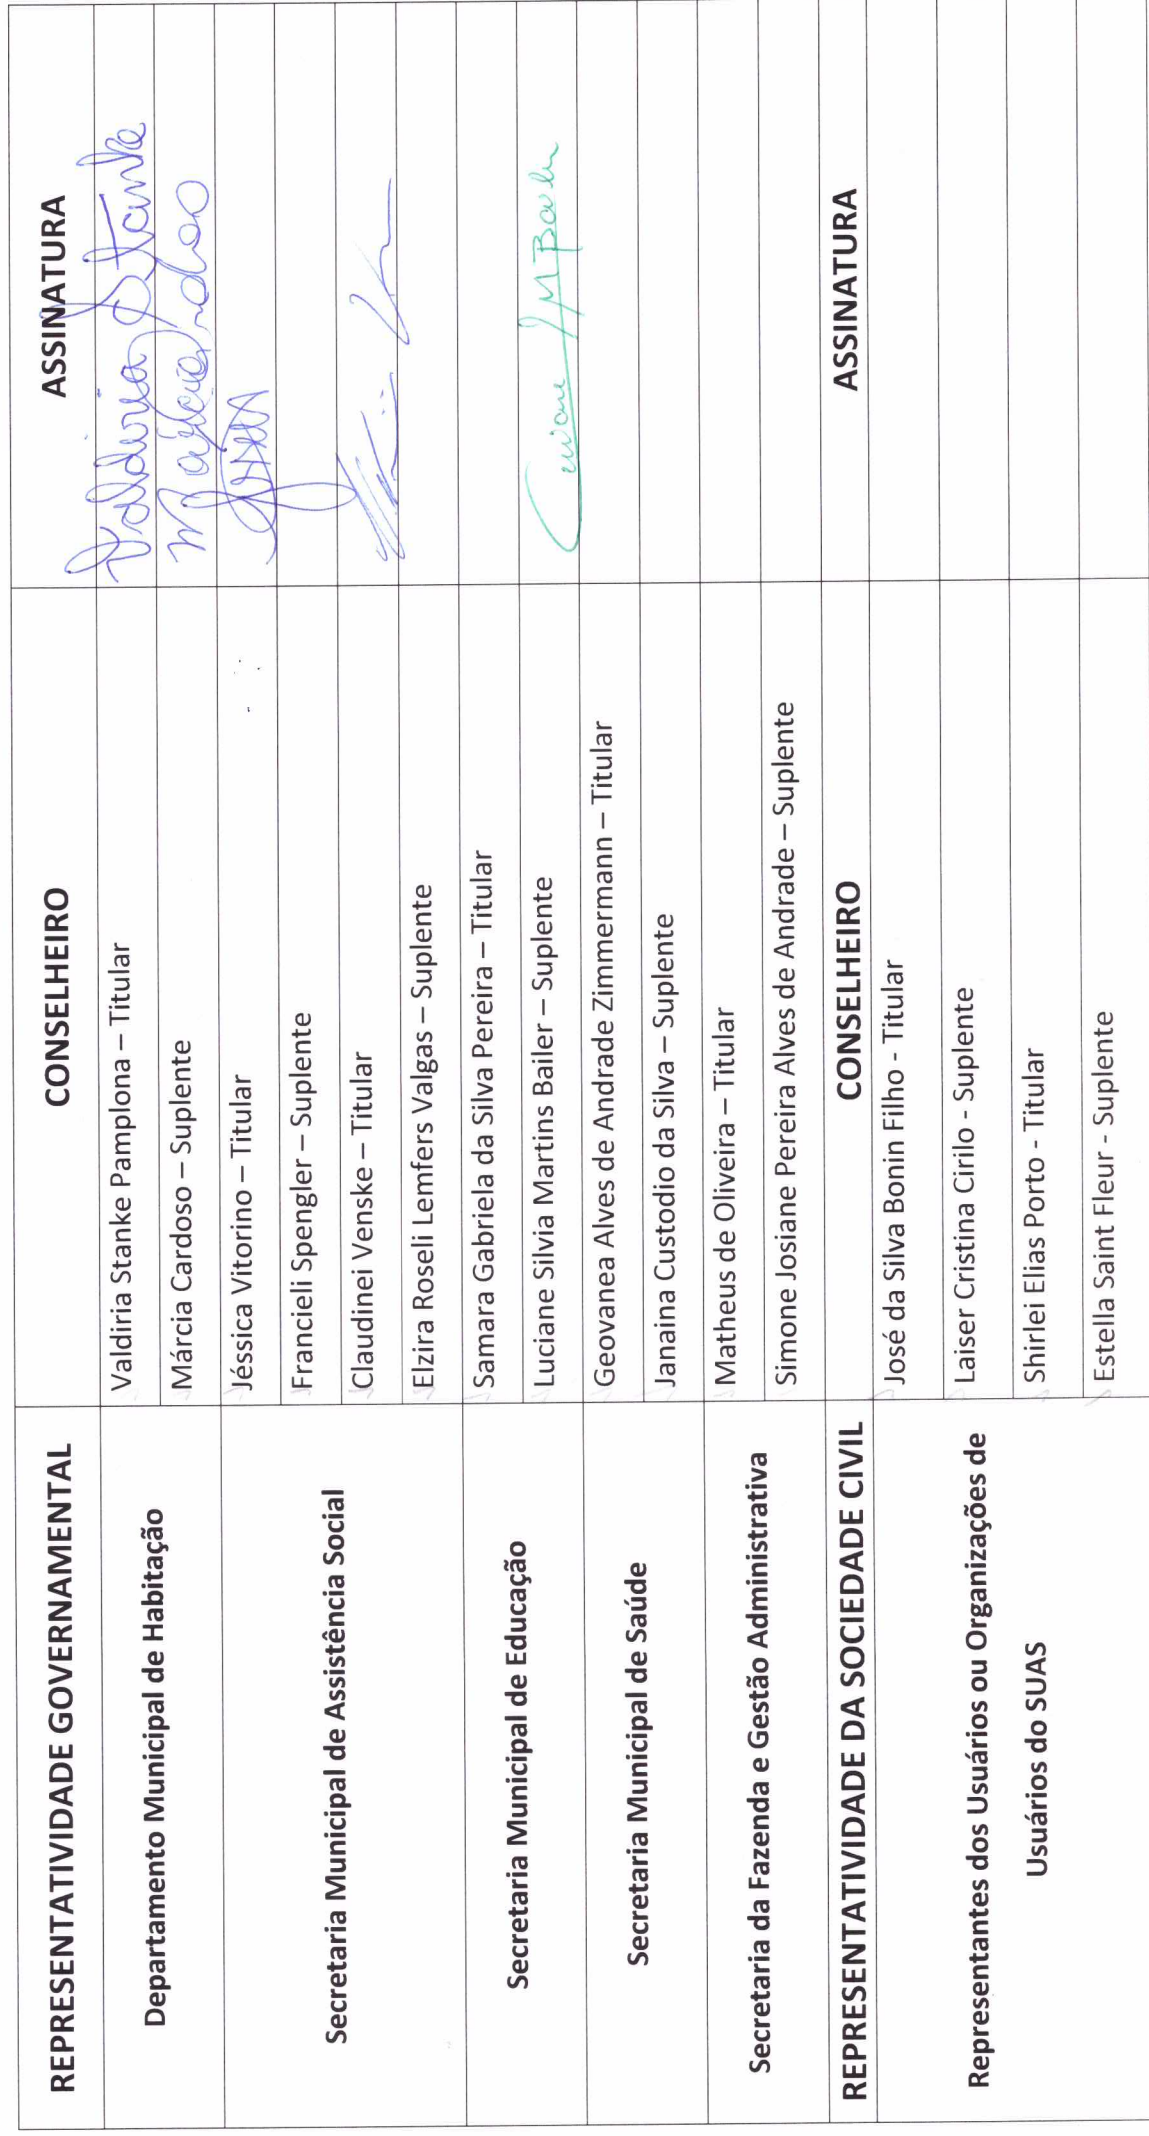 REPRESENTATIVIDADE GOVERNAMENTAL CONSELHEIRO ASSINATURA
Departamento Municipal de Habitação
Valdiria Stanke Pamplona – Titular Valdiria Stanke
Márcia Cardoso – Suplente Márcia Cardoso
Secretaria Municipal de Assistência Social
Jéssica Vitorino – Titular
Francieli Spengler – Suplente
Claudinei Venske – Titular
Elzira Roseli Lemfers Valgas – Suplente
Secretaria Municipal de Educação
Samara Gabriela da Silva Pereira – Titular
Luciane Silvia Martins Bailer – Suplente
Secretaria Municipal de Saúde
Geovanea Alves de Andrade Zimmermann – Titular
Janaina Custodio da Silva – Suplente
Secretaria da Fazenda e Gestão Administrativa
Matheus de Oliveira – Titular
Simone Josiane Pereira Alves de Andrade – Suplente
REPRESENTATIVIDADE DA SOCIEDADE CIVIL CONSELHEIRO ASSINATURA
Representantes dos Usuários ou Organizações de
Usuários do SUAS
José da Silva Bonin Filho - Titular
Laiser Cristina Cirilo - Suplente
Shirlei Elias Porto - Titular
Estella Saint Fleur - Suplente